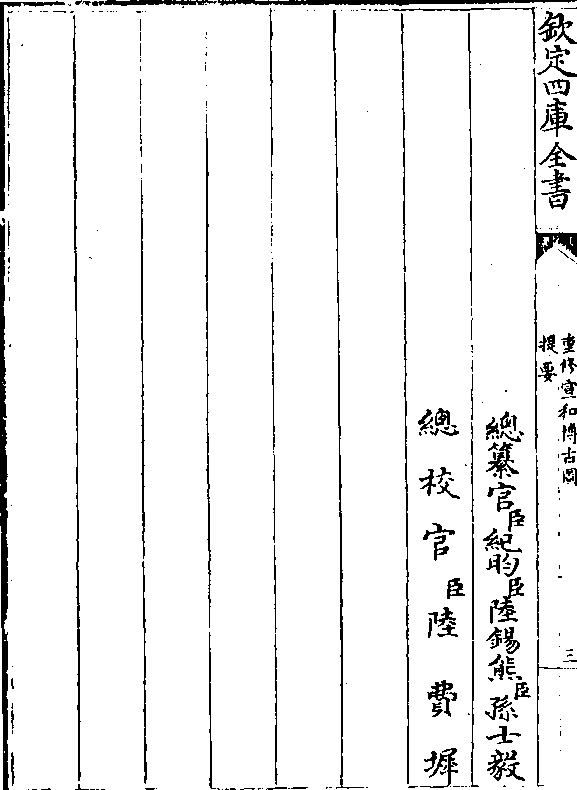 欽定四庫全書
重修宣和博古圖
提要
三
總纂官臣紀昀臣陸錫熊臣孫士毅
總校官臣陸費墀